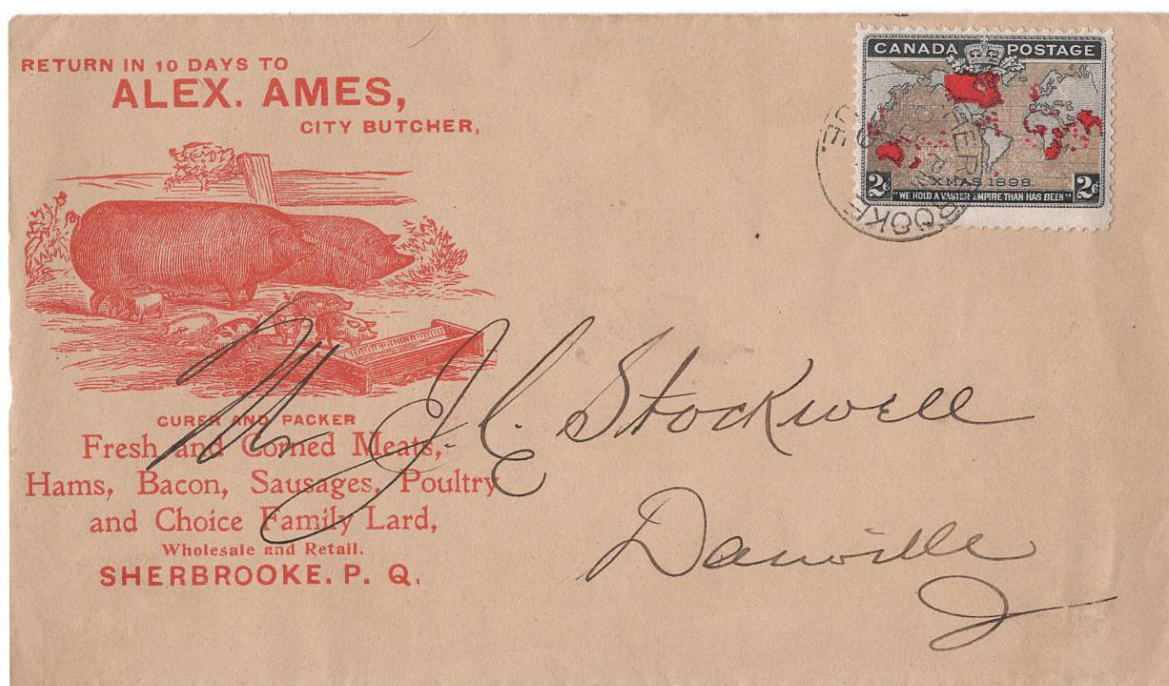 RETURN IN 10 DAYS TO
ALEX. AMES,
CITY BUTCHER,
CURER AND PACKER
Fresh and Corned Meats,
Hams, Bacon, Sausages, Poultry
and Choice Family Lard,
Wholesale and Retail.
SHERBROOKE. P. Q.
CANADA POSTAGE
XMAS 1898
2c 2c
"WE HOLD A VASTER EMPIRE THAN HAS BEEN"
SHERBROOKE
QUE.
Mr J. C. Stockwell
Danville